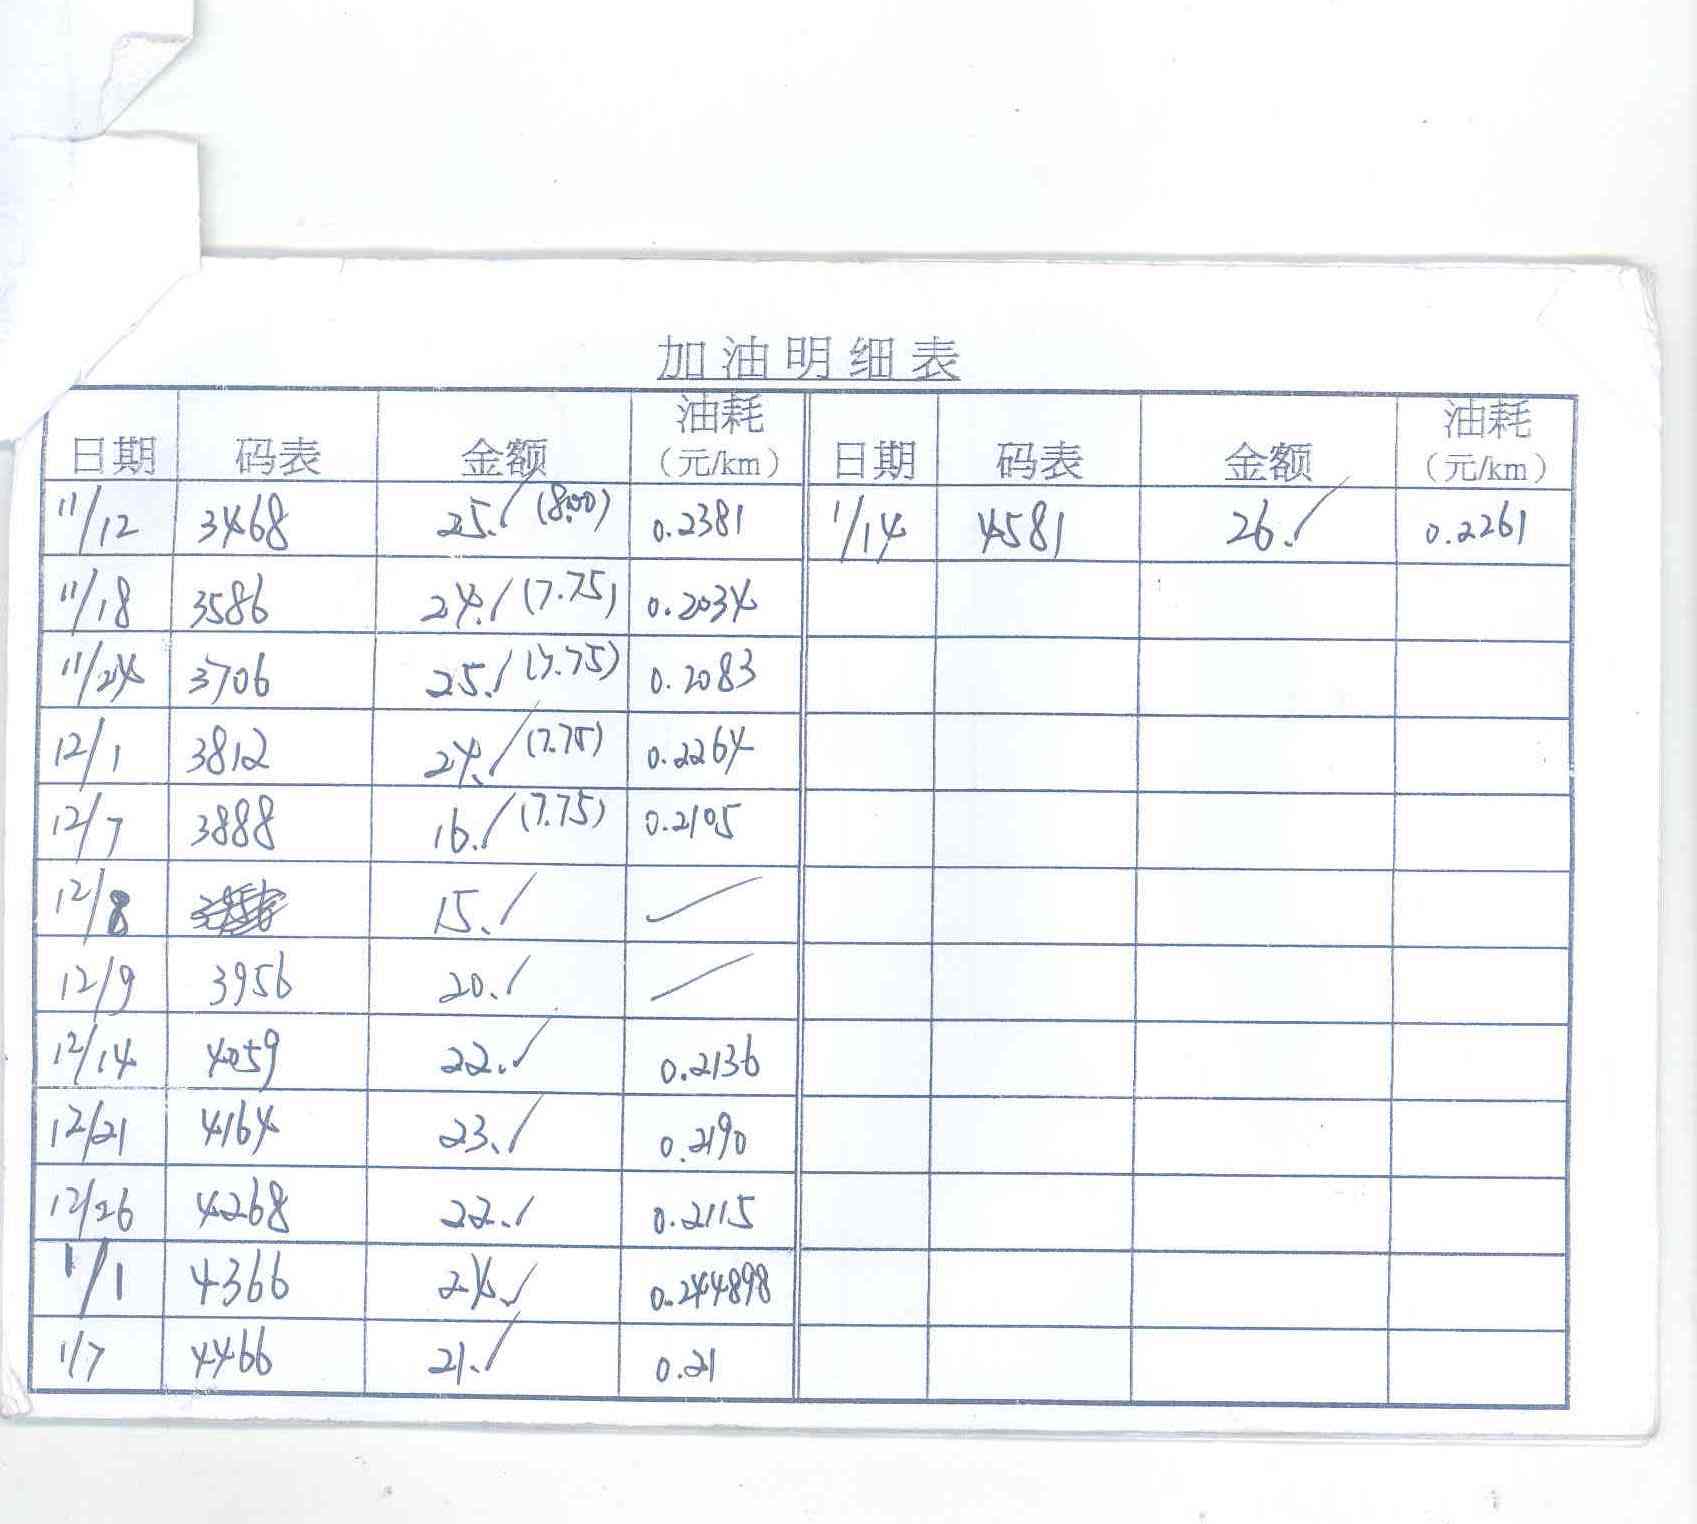 加油明细表
日期 码表 金额 油耗(元/km) 日期 码表 金额 油耗(元/km)
11/12 3468 25./ (8.00) 0.2381 1/14 4581 26./ 0.2261
11/18 3586 24./ (7.75) 0.2034
11/24 3706 25./ (7.75) 0.2083
12/1 3812 24./ (7.75) 0.2264
12/7 3888 16./ (7.75) 0.2105
12/8 15./ /
12/9 3956 20./ /
12/14 4059 22./ 0.2136
12/21 4164 23./ 0.2190
12/26 4268 22./ 0.2115
1/1 4366 24./ 0.244898
1/7 4466 21./ 0.21